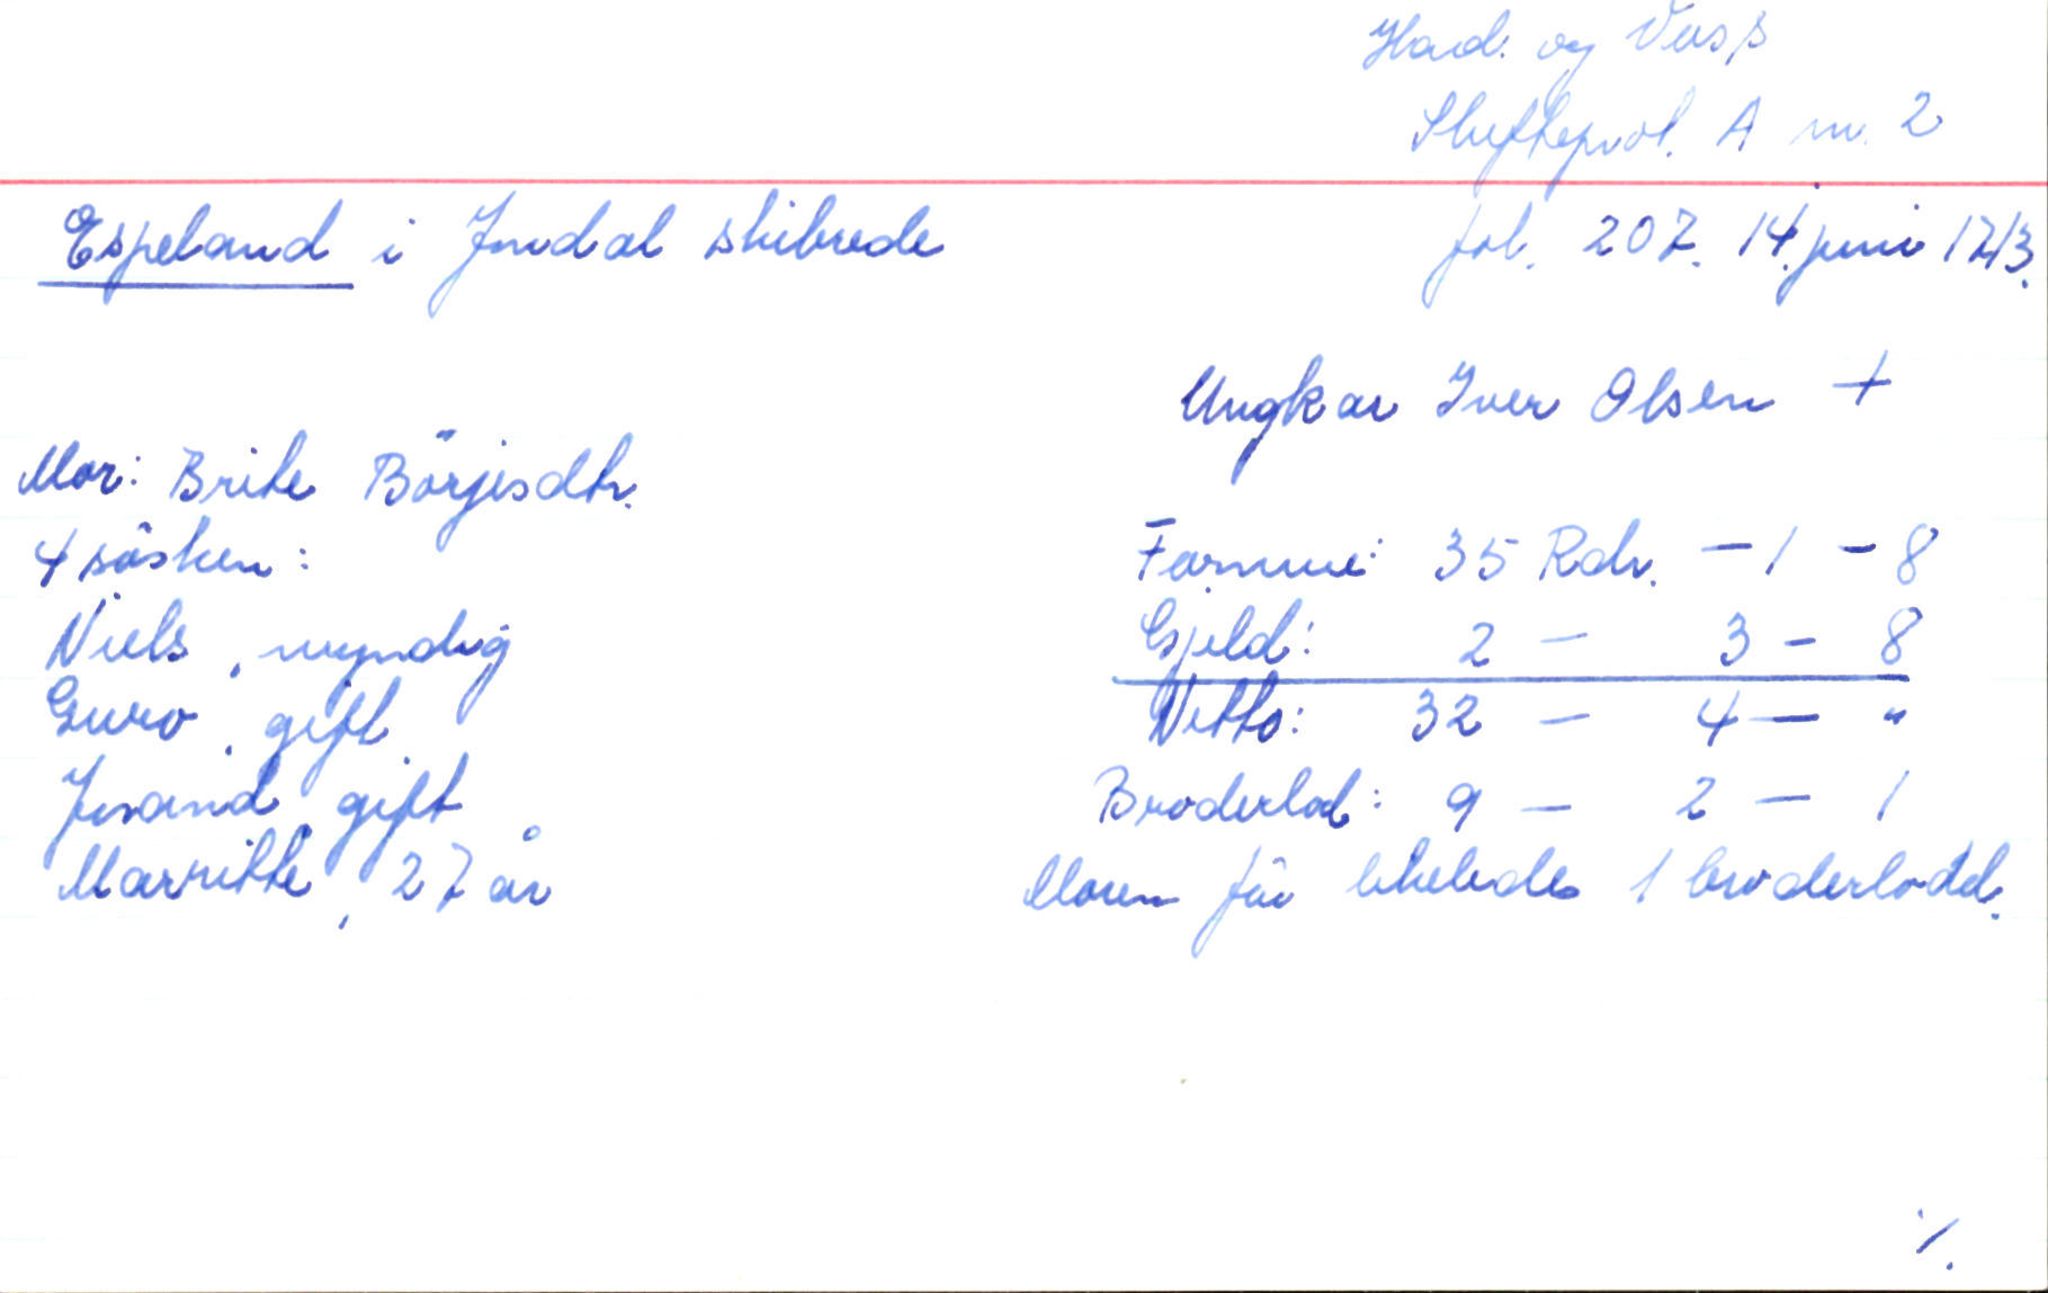 Hard. og Voss
Skifteprot. A nr. 2
Espeland i Jondal skibrede
fol. 207. 14. juni 1713.
Ungkar Iver Olsen +
Mor: Brite Börjesdtr.
4 søsken:
Niels, myndig
Guro, gift
Jorand, gift
Marritte, 27 år
Formue: 35 Rdr. - 1 - 8
Gjeld: 2 - 3 - 8
Netto: 32 - 4 - "
Broderlod: 9 - 2 - 1
Moren får likeledes 1 broderlodd.
./.